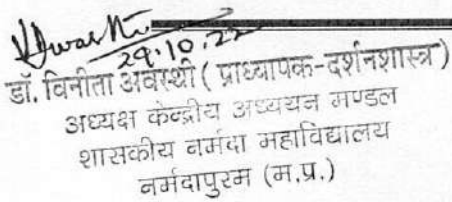 29.10.22
डॉ. विनीता अवस्थी ( प्राध्यापक-दर्शनशास्त्र)
अध्यक्ष केन्द्रीय अध्ययन मण्डल
शासकीय नर्मदा महाविद्यालय
नर्मदापुरम (म.प्र.)